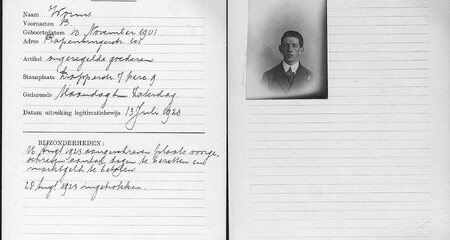 Naam Worms
Voornamen B.
Geboortedatum 10 November 1901
Adres Rapenburgerstr.
Artikel ongeregelde goederen
Staanplaats Dapperstr. 7 perc 9
Gedurende Maandag t/m Zaterdag
Datum uitreiking legitimatiebewijs 13 Juli 1923
BIJZONDERHEDEN:
16 Aug! 1923 aangeschreven plaats voorge-
schreven aantal dagen te bezetten en
marktgeld te betalen
28 Aug! 1923 ingetrokken.